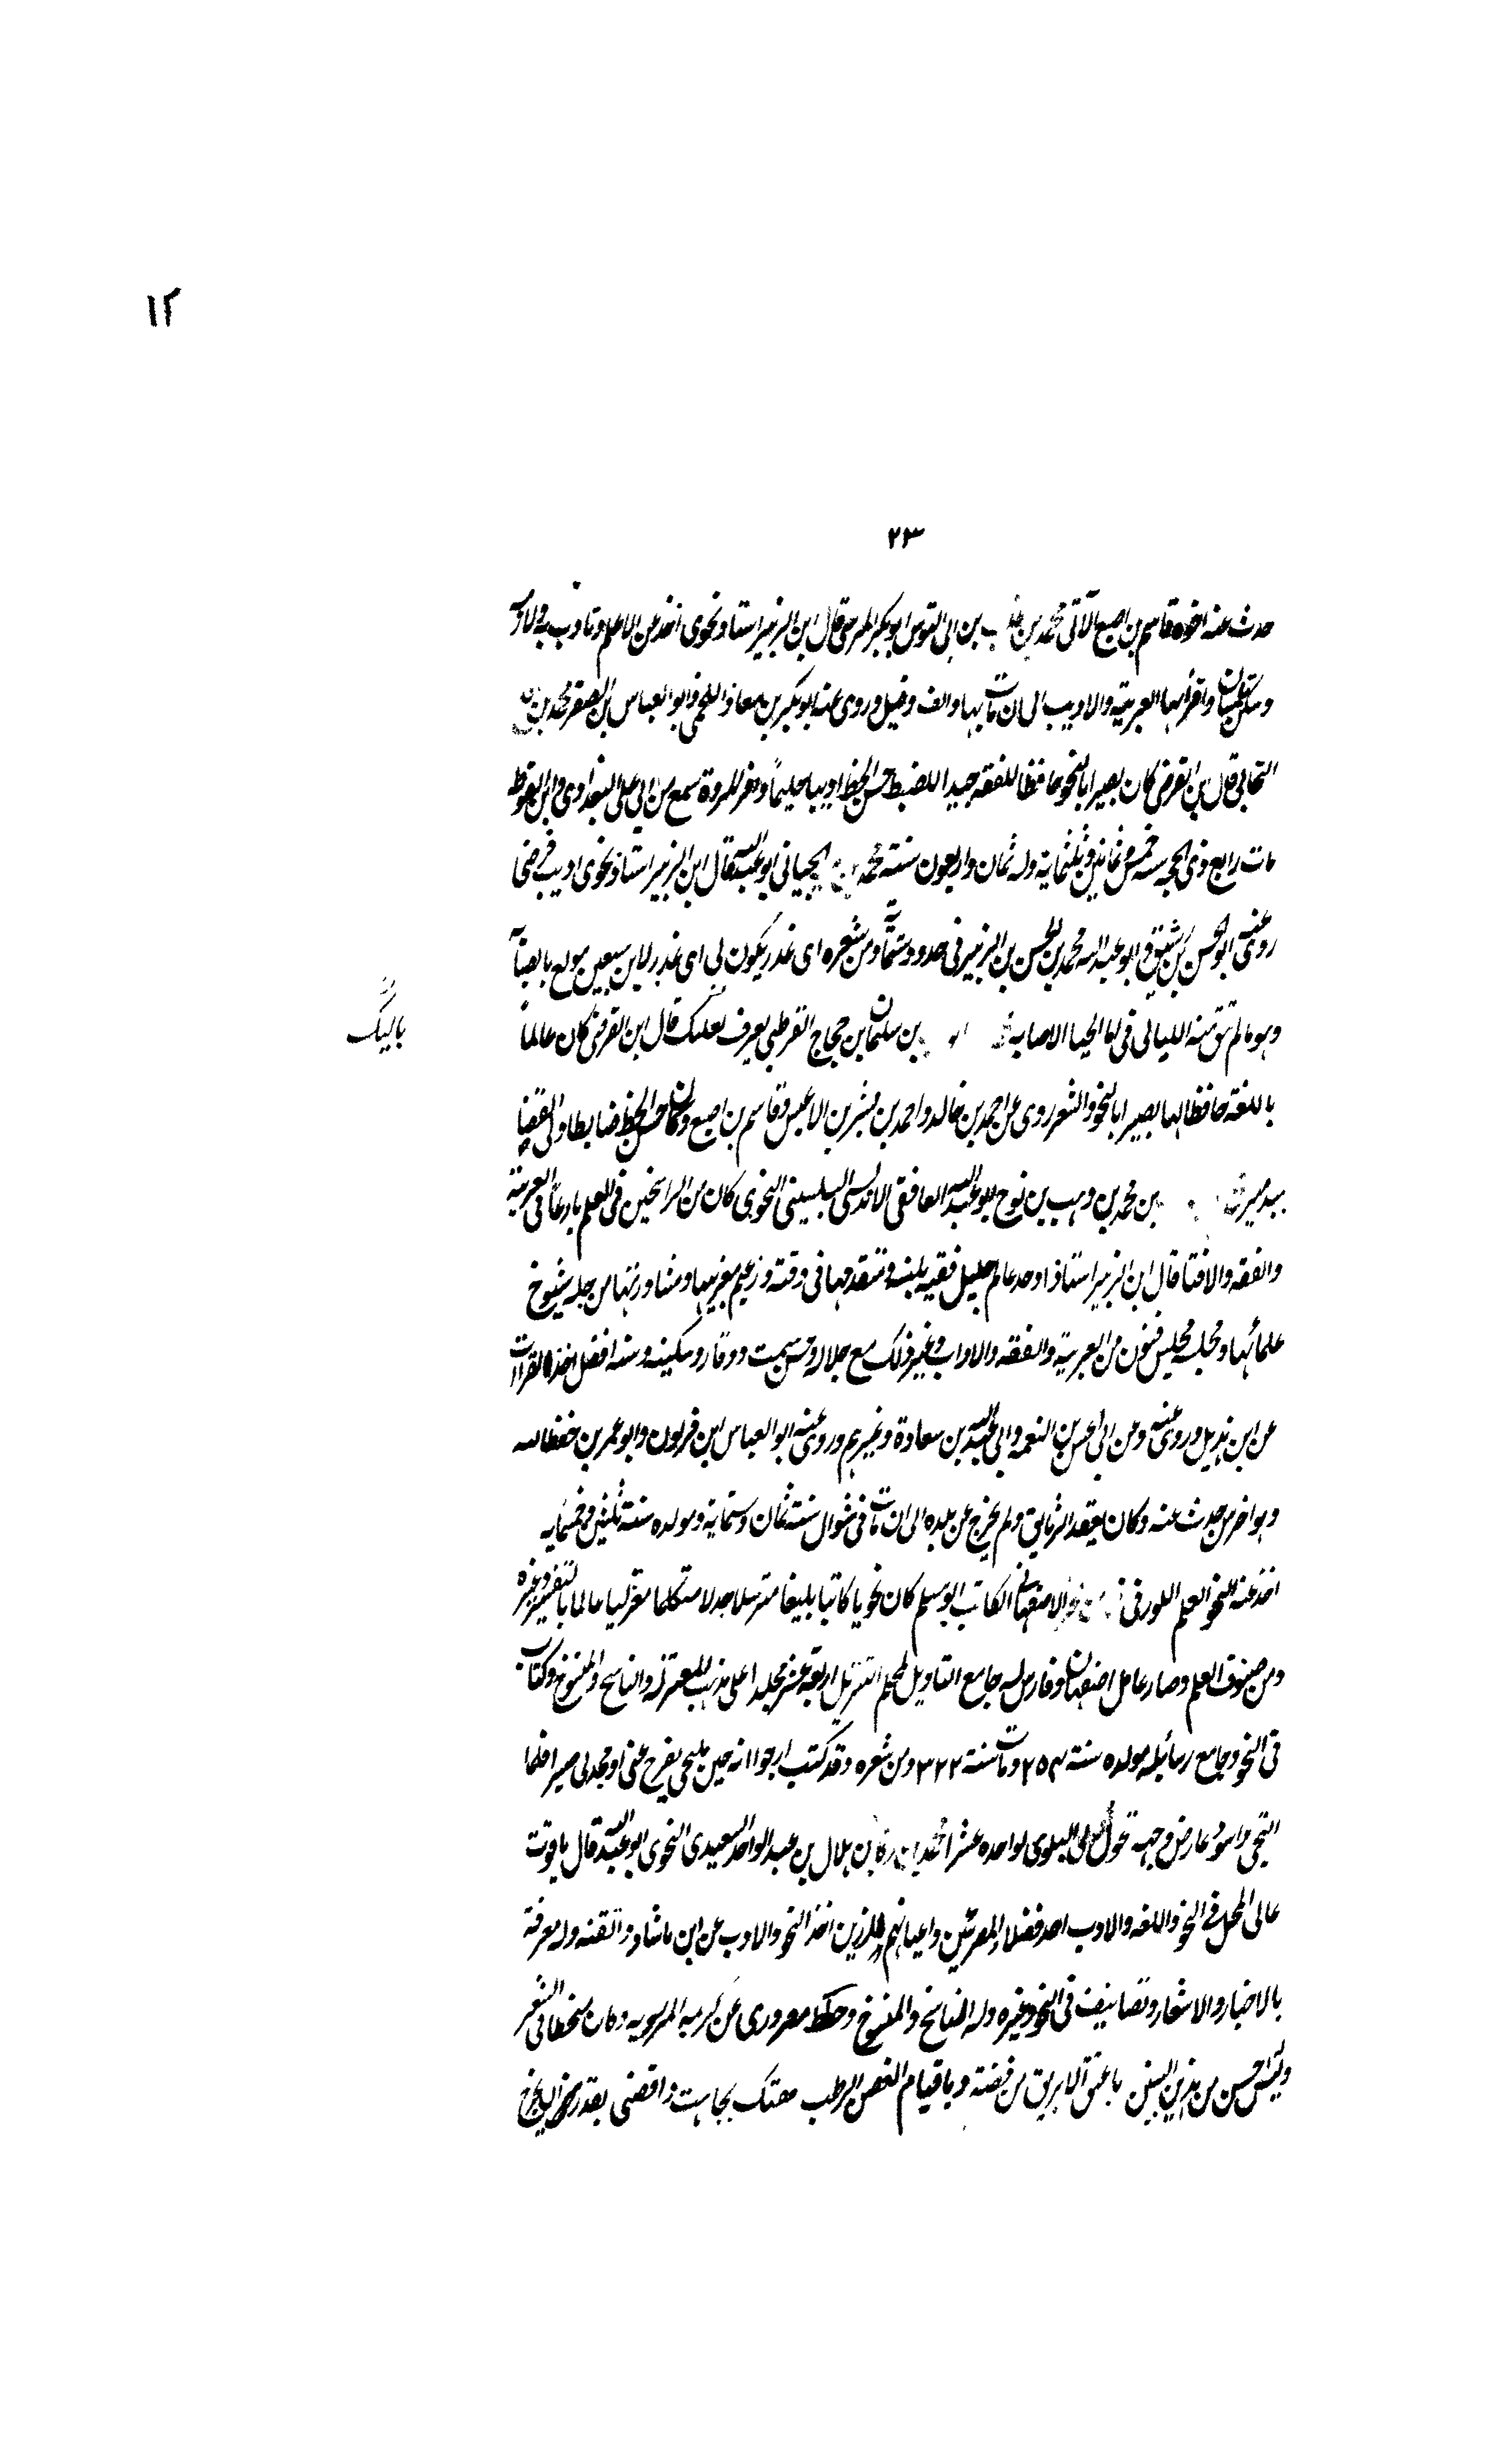 ١٢
٢٣
حدث عنه اخوه قاسم بن اصبغ الآتى محمد بن بن ابى القوس ابو بكر المرسى قال ابن الزبير استاذ نحوى اخذ عن الاعلم وتادب به
وسكن تلمسان واقرأ بها العربية والاديب الى ان مات بها والف وروى عنه ابو بكر بن معاذ اللخمى وابو العباس بن الصقر محمد بن
قال بن الفرضى كان بصيرا بالنحو حافظا للفقه جيد الضبط حسن الخط اديبا حليما وافر المروة سمع من ابى على البغدادى وابن القوطية
مات رابع ذى الحجه سنه خمس وثمانين وثلثماية وله ثمان واربعون سنة محمد الجيانى ابو عبد الله قال ابن الزبير استاذ نحوى اديب فرضى
روى عنه ابو الحسن بن رشيق ابو عبد الله محمد بن الحسن بن الزبير فى حدود ستماة ومن شعره اى عذر يكون لى اى عذر لابن سبعين مولع بالصبا
وهو ما لم تبق منه الليالى فى انا الحيا الا صبابه بن سليمان بن حجاج القرطبى يعرف قال ابن الفرضى كان عالما
باليك
باللغة حافظا لها بصيرا بالنحو والشعر روى عن احمد بن خالد واحمد بن بشر بن الاغبس وقاسم بن اصبغ وكان حسن الخط ضابطا ولى القضا
بن محمد بن وهب بن نوح ابو عبد الله الغافقى الاندلسى البلنسى النحوى كان من الراسخين فى العلم بارعا فى العربية
والفقه والافتا قال ابن الزبير استاذ اوحد عالم جليل فقيه بلنسه ومتقدمها فى وقته وزعيم مفتيها ومشاورتها من جلة شيوخ
علمائها ومجلسه مجلس فنون من العربية والفقه والاداب وغير ذلك مع جلاله وحسن سمت ووقار وسكينه وسنه افضل اخذ القراات
عن ابن هذيل وروى عنه وعن ابى الحسن بن النعمه وابى عبد الله بن سعادة وغيرهم وروى عنه ابو العباس ابن فرتون وابو عمر بن حفظ الله
وهو اخر من حدث عنه وكان يعقد الوثايق ولم يخرج عن بلده الى ان مات فى شوال سنة ثمان وستماية ومولده سنة ثلثين وخمسمايه
اخذ عنه النحو العلم اللورقى الاصفهانى الكاتب ابو مسلم كان نحويا كاتبا بليغا مترسلا جدلا متكلما معتزليا عالما بالتفسير وغيره
ومن صنوف العلم وصار عامل اصفهان وفارس له جامع التاويل لمحكم التنزيل اربعة عشر مجلدا على مذهب المعتزله والناسخ والمنسوخ وكتاب
فى النحو وجامع رسائله مولده سنة ٢٥٤ ومات سنة ٣٢٢ ومن شعره وقد كنت ارجو انه حين يلتحى يفرج عنى او يجدد لى صبرا فلما
التحى واسود عارض وجهه تحول لى البلوى بواحده عشرا محمد بن بركة بن هلال بن عبد الواحد السعيدى النحوى ابو عبد الله قال ياقوت
عالى المحل فى النحو واللغه والادب احد فضلاء المصريين واعيانهم المبرزين اخذ النحو والادب عن ابن بابشاذ واتقنه وله معرفة
بالاخبار والاشعار وتصانيف فى النحو وغيره وله الناسخ والمنسوخ وخطط مصر وروى عن كريمه المروية وكان منحطا فى الشعر
وليس احسن من هذين البيتين يا عنق الابريق من فضة ويا قوام الغصن الرطب هبك تجافيت واقصيتنى تقدر ان تخرج